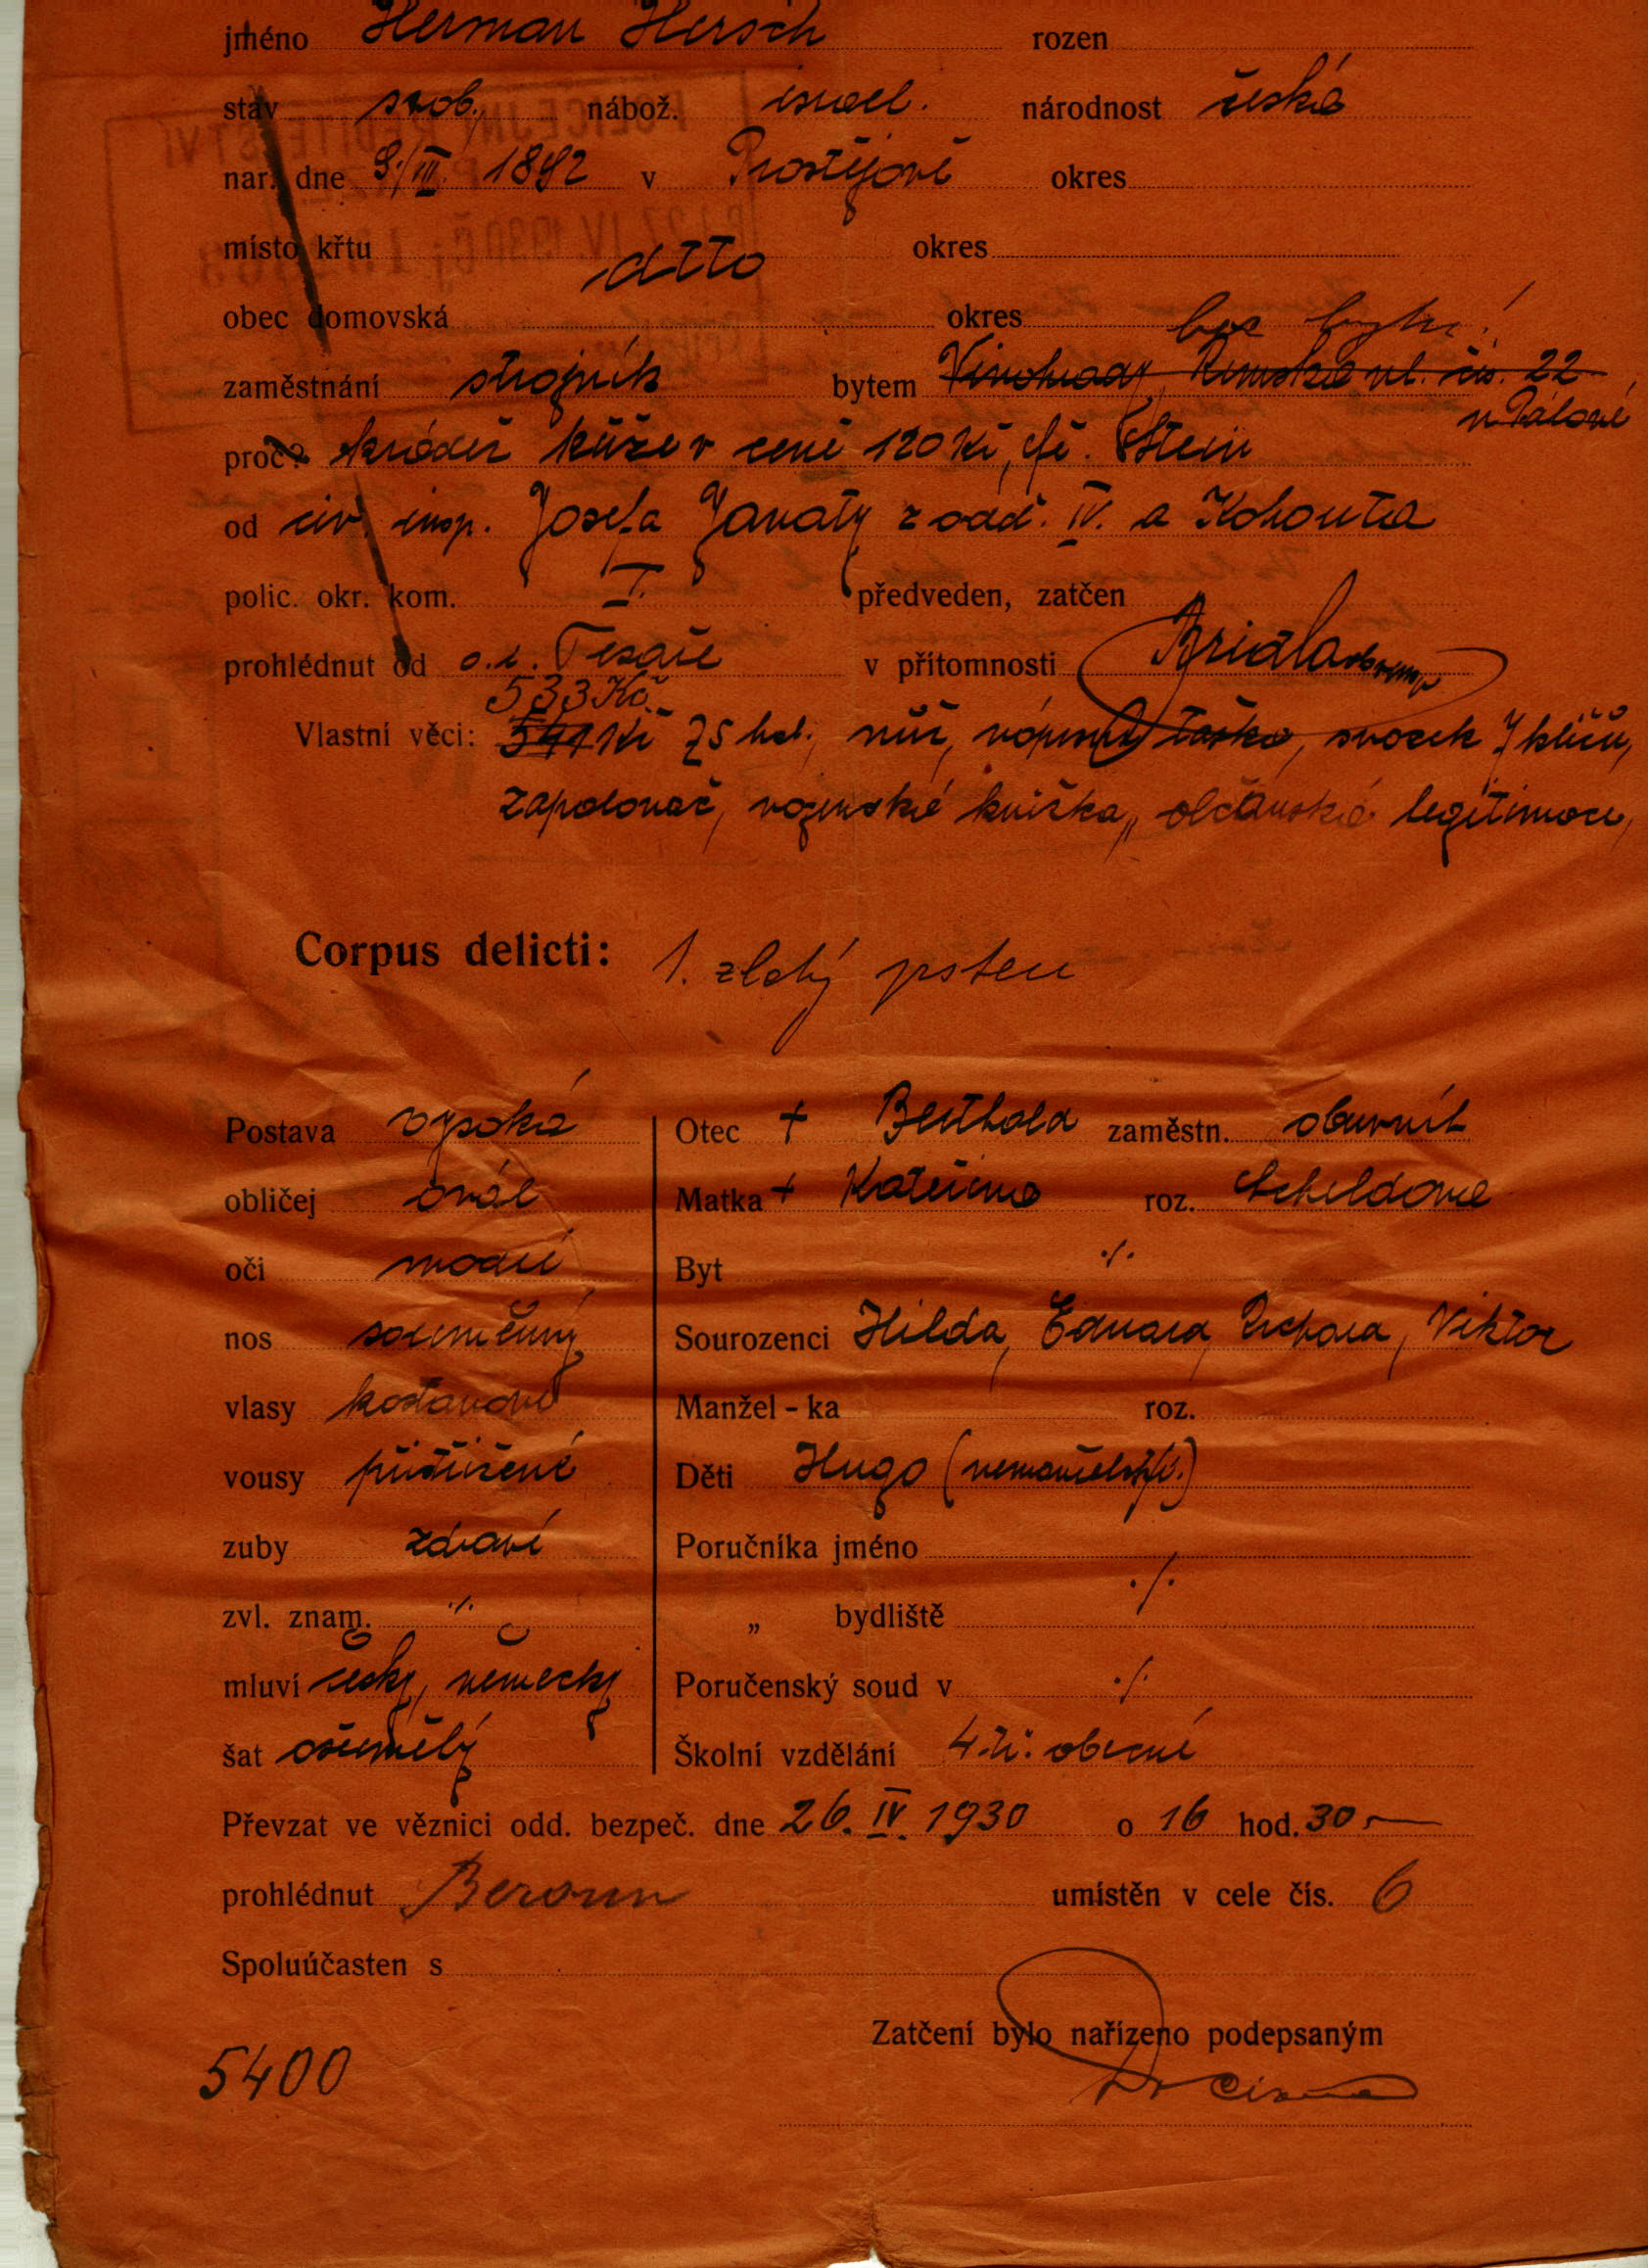 jméno Herman Hersch rozen
stav svob. nábož. israel. národnost česká
nar. dne 9./III. 1892 v Prostějově okres
místo křtu dtto okres
obec domovská okres bez bytu!
zaměstnání strojník bytem Vinohrady, Římská ul. čís. 22
u Pálové
proč? krádež kůže v ceně 120 Kč, fě. Stein
od civ. insp. Josefa Janaty z odd. IV. a Kohouta
polic. okr. kom. I. předveden, zatčen
prohlédnut od o.i. Tesaře v přítomnosti Bridla
533 Kč
Vlastní věci: 541 Kč 75 hal., nůž, nápisní taška, svazek 7 klíčů,
zapalovač, vojenská knížka, občanská legitimace,
Corpus delicti: 1. zlatý prsten
Postava vysoká Otec + Berthold zaměstn. obuvník
obličej ovál Matka + Kateřina roz. Scheldová
oči modré Byt ./.
nos souměrný Sourozenci Hilda, Eduard, Richard, Viktor
vlasy kaštanové Manžel - ka roz.
vousy přistřižené Děti Hugo (nemanželský.)
zuby zdravé Poručníka jméno
zvl. znam. ./. „ bydliště ./.
mluví česky, německy Poručenský soud v ./.
šat ošumělý Školní vzdělání 4 tř. obecné
Převzat ve věznici odd. bezpeč. dne 26. IV. 1930 o 16 hod. 30
prohlédnut Beroun umístěn v cele čís. 6
Spoluúčasten s
Zatčení bylo nařízeno podepsaným
5400